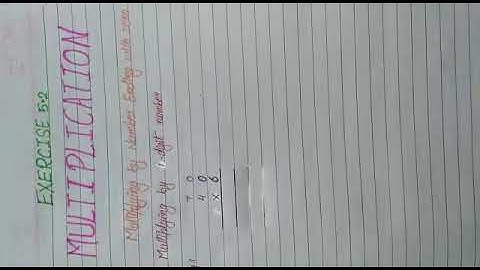 EXERCISE 5.2
MULTIPLICATION
Multiplying by Number Ending with zero
Multiplying by 1-digit number
T O
4 0
x 6